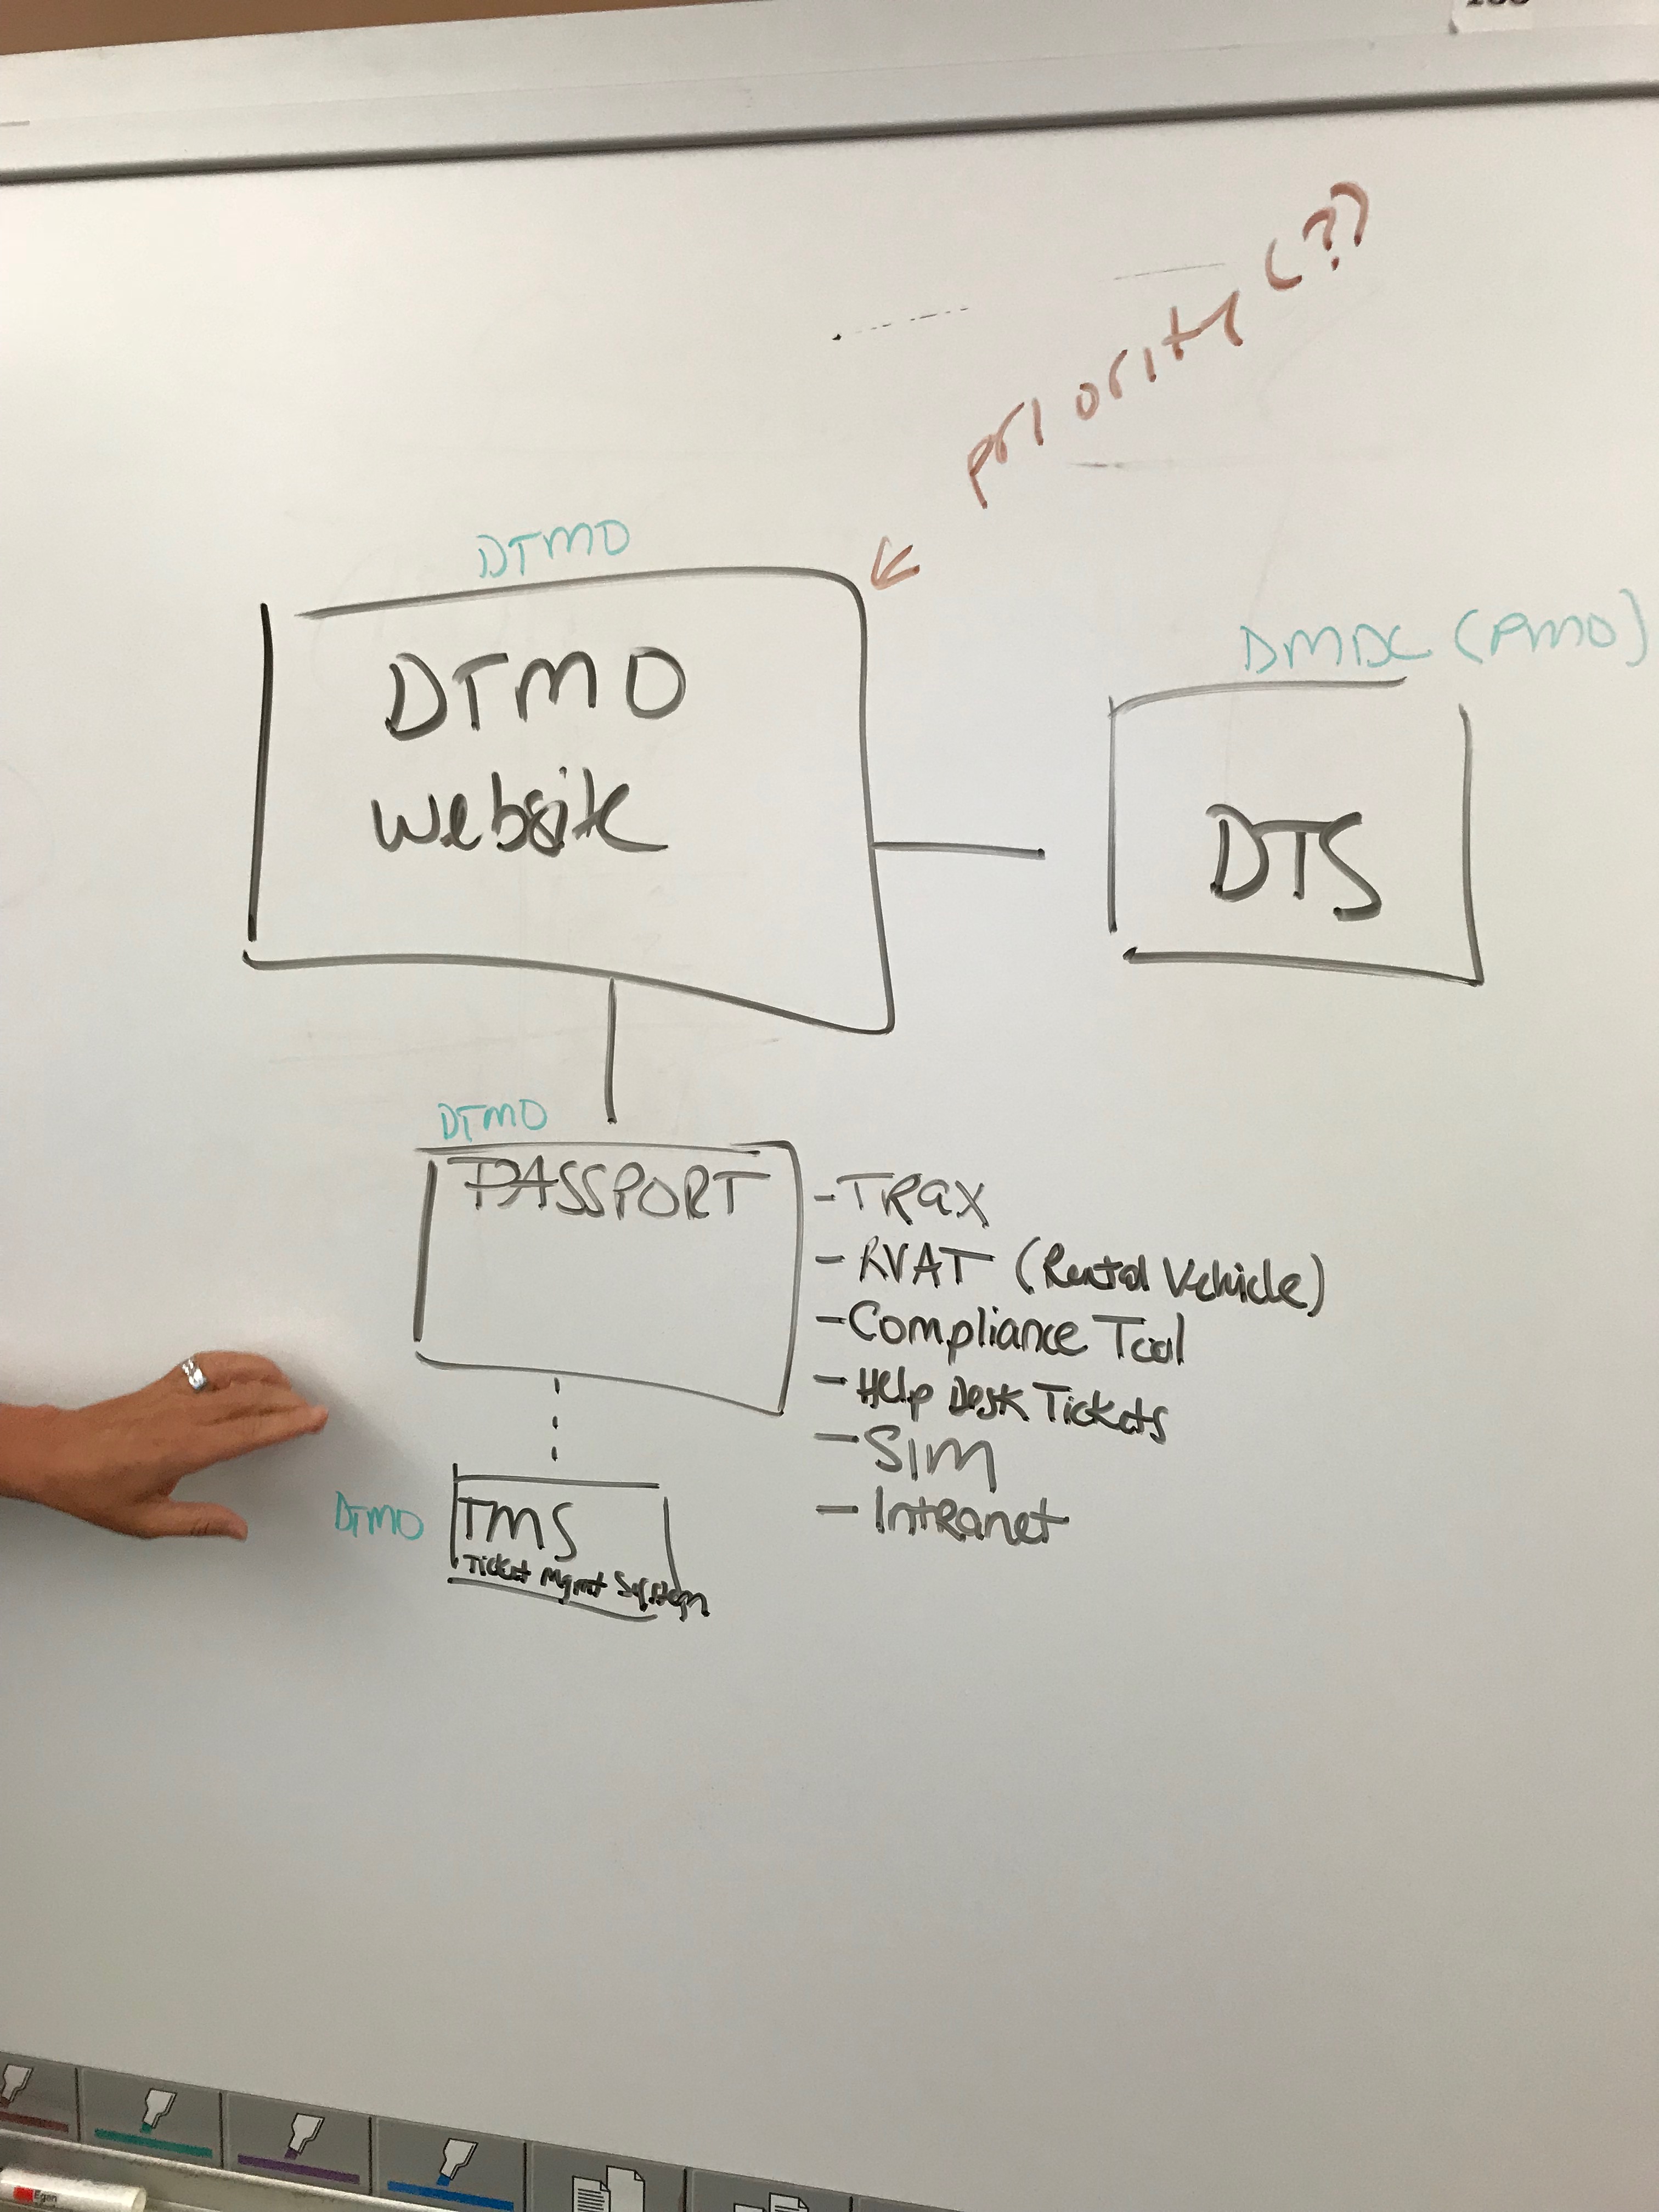 priority (??)
DTMO
DTMO
Website
DMDC (PMO)
DTS
DTMO
PASSPORT
- TRax
- RVAT (Rental Vehicle)
- Compliance Tool
- Help Desk Tickets
- SIM
- Intranet
DTMO
TMS
Ticket Mgmt System
Egan